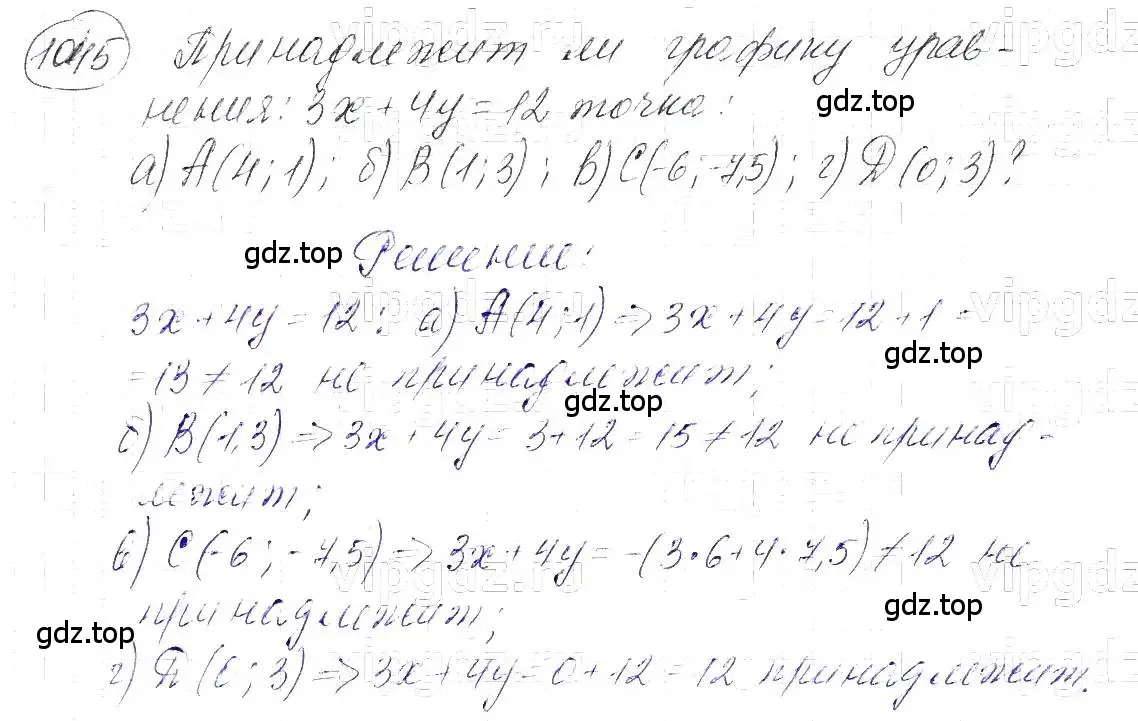 1045 Принадлежит ли графику урав-
нения: 3x + 4y = 12 точка:
gdz.top
а) A(4; 1); б) B(1; 3); в) C(-6; -7,5); г) Д(0; 3)?
gdz.top
Решение:
3x + 4y = 12: а) A(4; 1) => 3x + 4y = 12 + 1 =
gdz.top
= 13 ≠ 12 не принадлежит;
gdz.top
б) B(1,3) => 3x + 4y = 3 + 12 = 15 ≠ 12 не принад-
лежит;
в) C(-6; -7,5) => 3x + 4y = -(3·6 + 4·7,5) ≠ 12 не
gdz.top
принадлежит;
gdz.top
г) Д(0; 3) => 3x + 4y = 0 + 12 = 12 принадлежит.